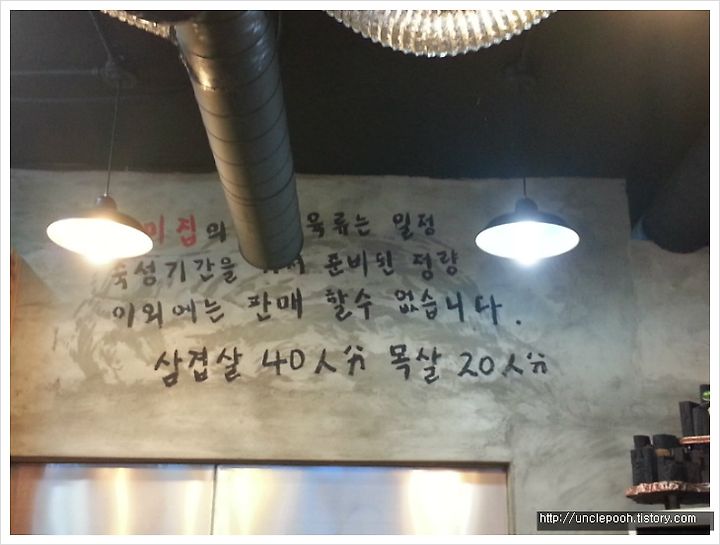 미집의 육류는 일정
숙성기간을 준비된 정량
이외에는 판매 할수 없습니다.
삼겹살 40人分 목살 20人分
http://unclepooh.tistory.com